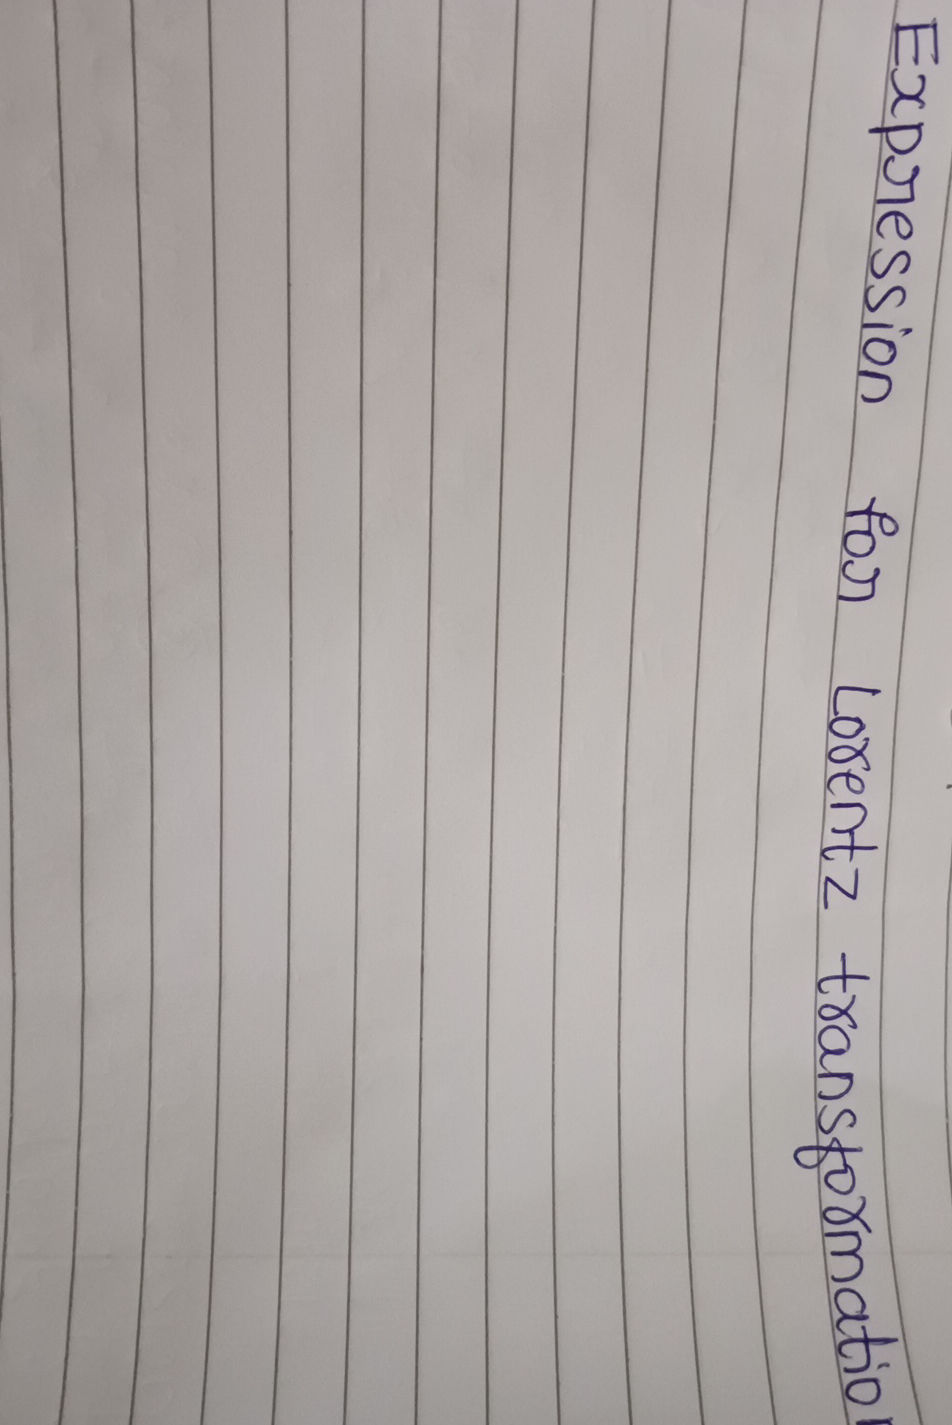 Expression for Lorentz transformation